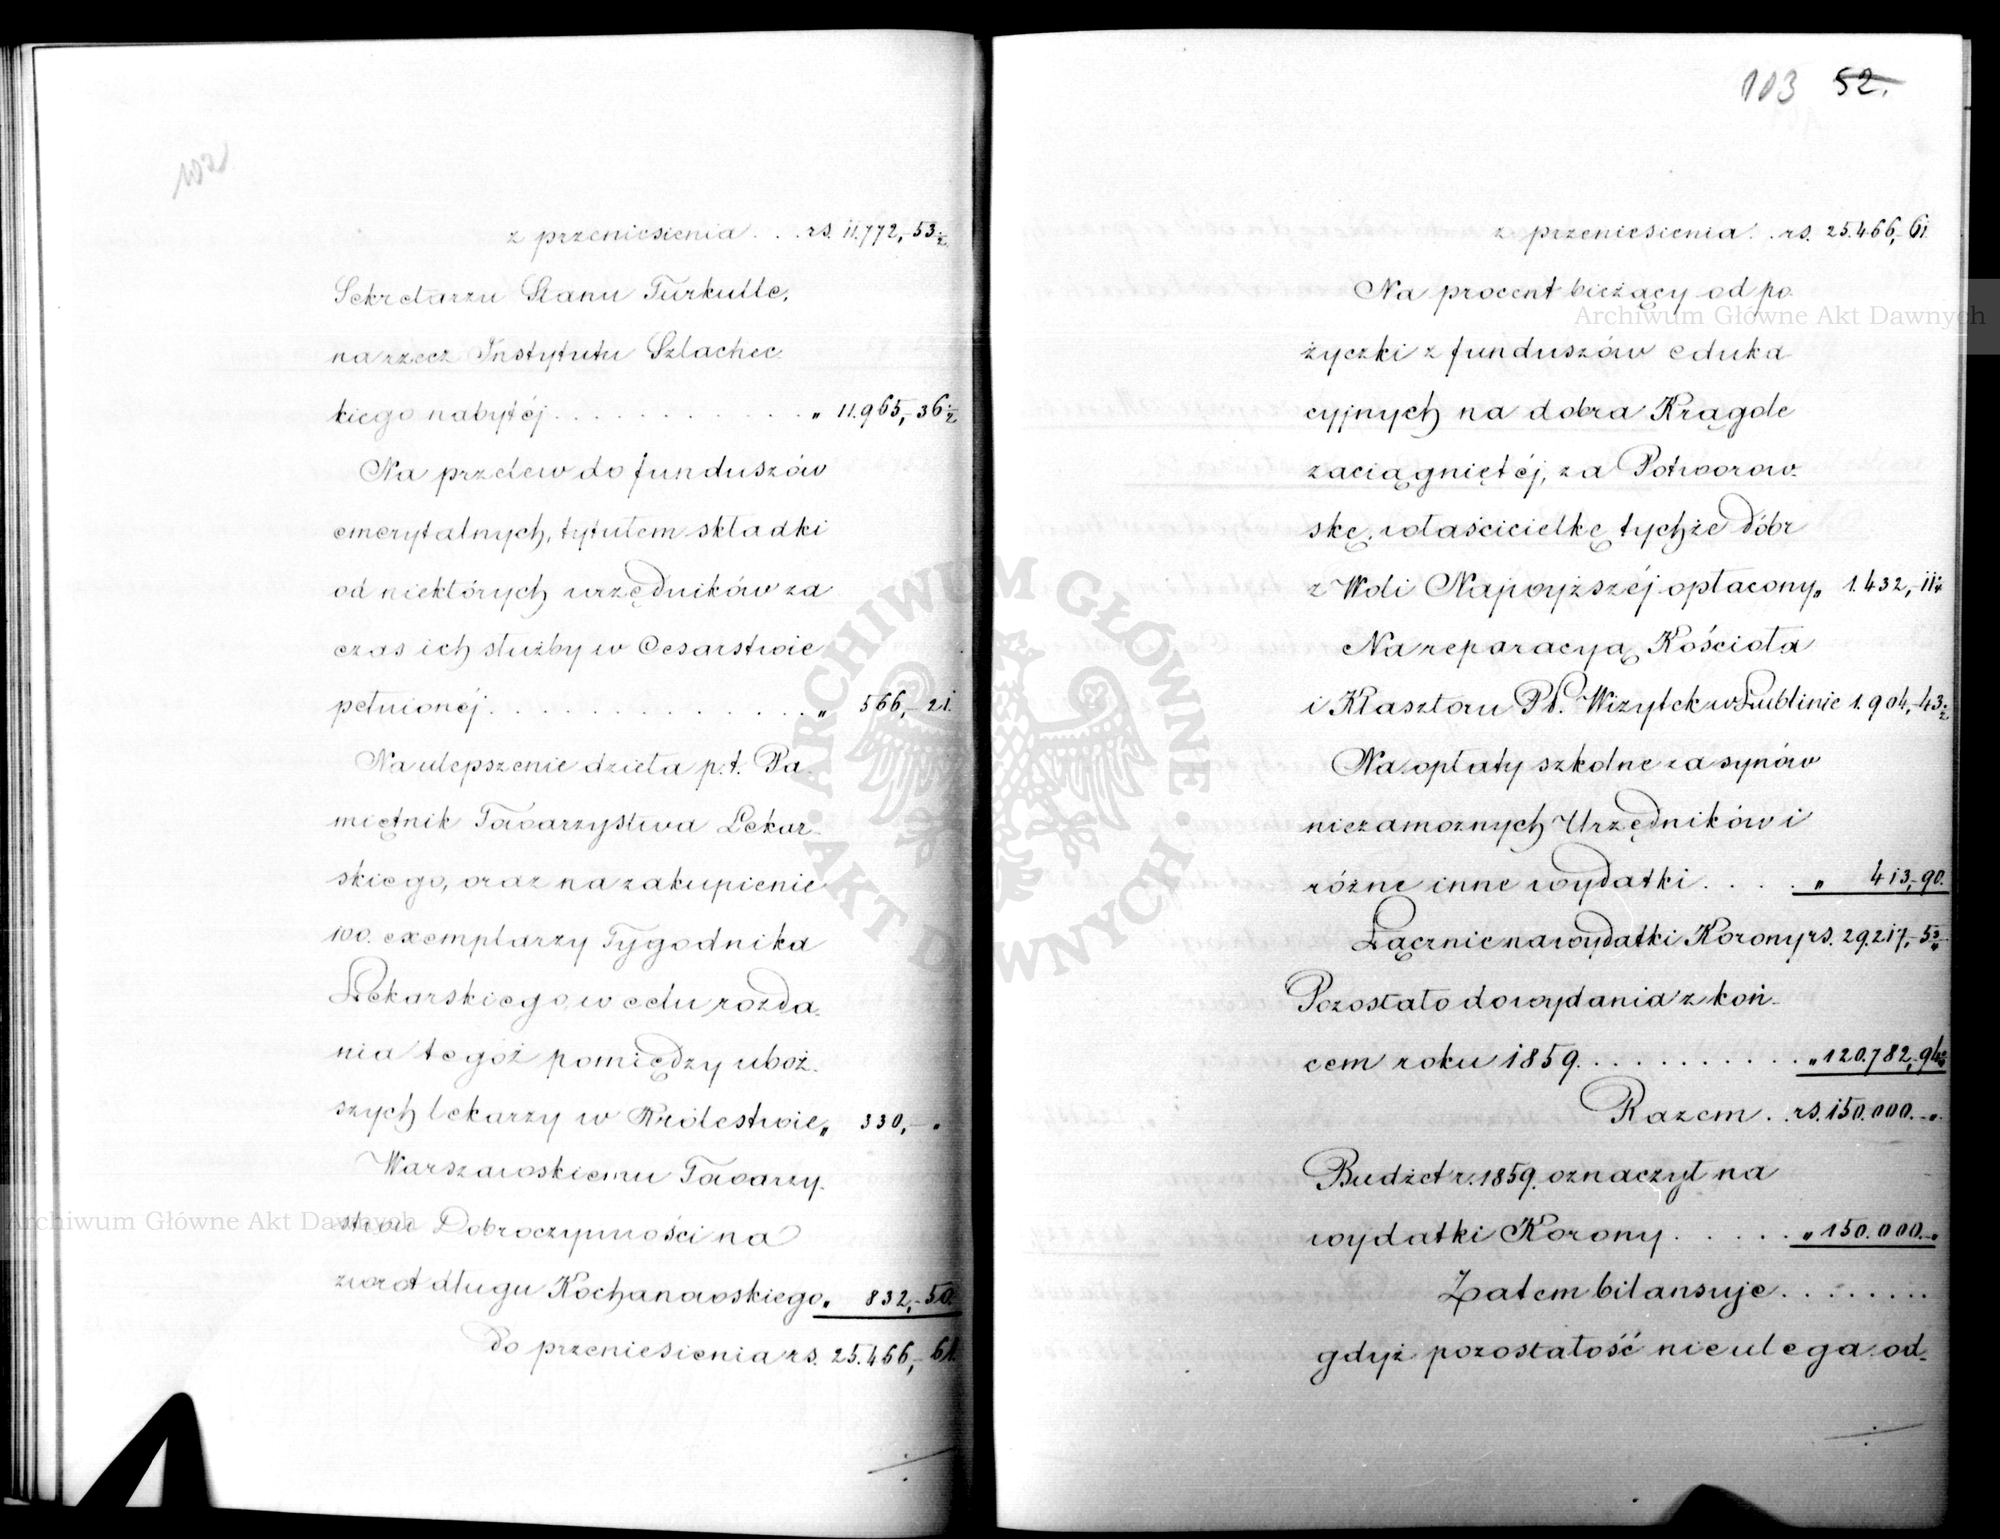 102
z przeniesienia . . . rs. 11.772,-53 1/2
Sekretarzu Stanu Turkułłe,
na rzecz Instytutu Szlachec-
kiego nabytéj . . . . . . . . . . . . „ 11.965,-36 1/2
Na przelew do funduszów
emerytalnych, tytułem składki
od niektórych urzędników za
czas ich służby w Cesarstwie
pełnionéj . . . . . . . . . . . . . . „ 566,-21.
Na ulepszenie dzieła p.t. Pa-
miętnik Towarzystwa Lekar-
skiego, oraz na zakupienie
100. exemplarzy Tygodnika
Lekarskiego, w celu rozda-
nia tegoż pomiędzy uboż-
szych lekarzy w Królestwie „ 330,-"
Warszawskiemu Towarzy-
stwu Dobroczynności na
zwrot długu Kochanowskiego „ 832,-50.
Do przeniesienia rs. 25.466,-61.
103 52.
z przeniesienia . . rs. 25.466,-61.
Na procent bieżący od po-
życzki z funduszów eduka
cyjnych na dobra Krągole
zaciągniętéj, za Potworow-
skę, właścicielkę tychże dóbr
z Woli Najwyższéj opłacony „ 1.432,-11 1/4
Na reparacyą Kościoła
i Klasztoru PP. Wizytek w Lublinie 1.904,-43 1/2
Na opłaty szkolne za synów
niezamożnych Urzędników i
różne inne wydatki . . . . „ 413,-90.
Łącznie na wydatki Korony rs. 29.217,-5 3/4
Pozostało do wydania z koń-
cem roku 1859. . . . . . . . . . . „ 120.782,-94 1/4
Razem . . rs. 150.000.-"
Budżet r. 1859. oznaczył na
wydatki Korony . . . . . . „ 150.000.-"
Zatem bilansuje . . . . . . . .
gdyż pozostałość nie ulega od-
Archiwum Główne Akt Dawnych
Archiwum Główne Akt Dawnych
ARCHIWUM GŁÓWNE · AKT DAWNYCH ·